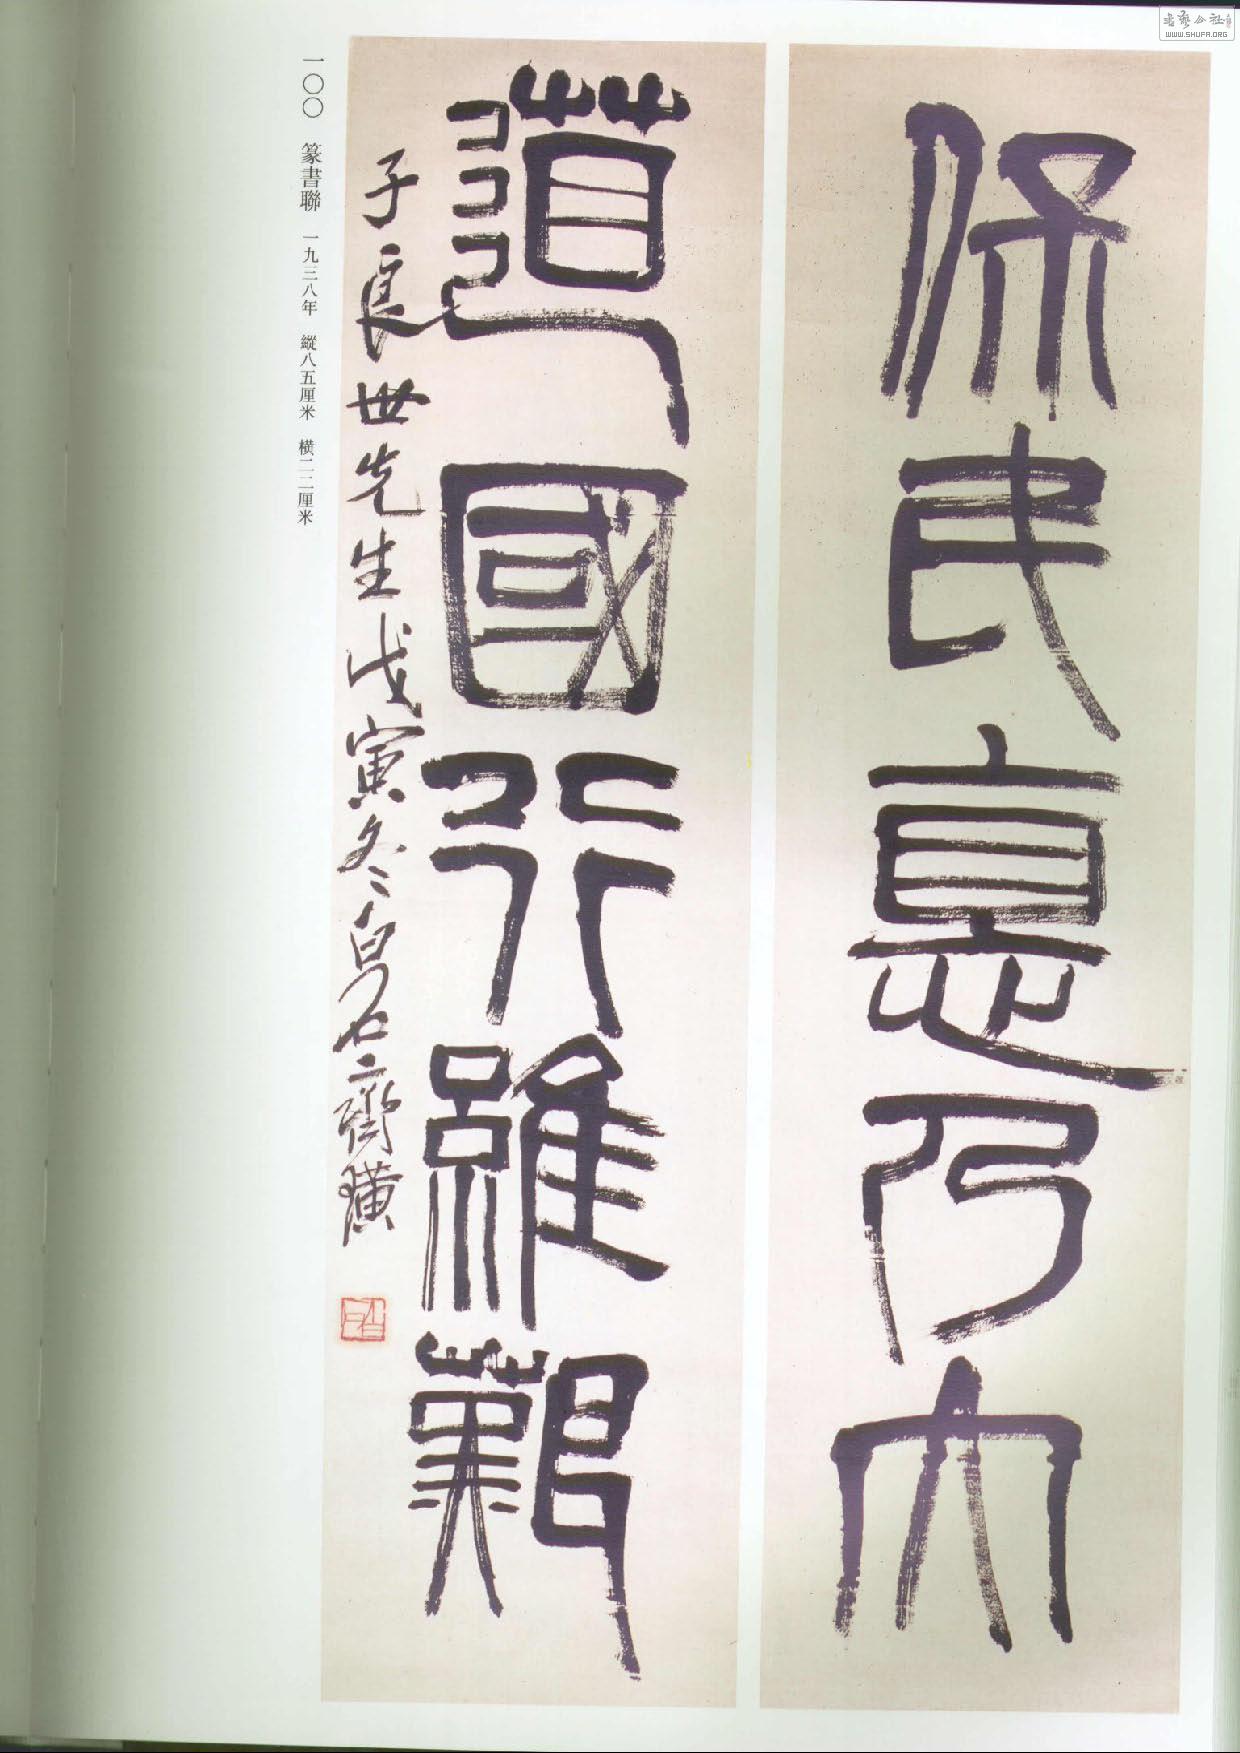 書藝公社
WWW.SHUFA.ORG
保民悳乃大
道國行維艱
子良世先生戊寅冬白石齊璜
一〇〇 篆書聯 一九三八年 縱八五厘米 橫二二厘米